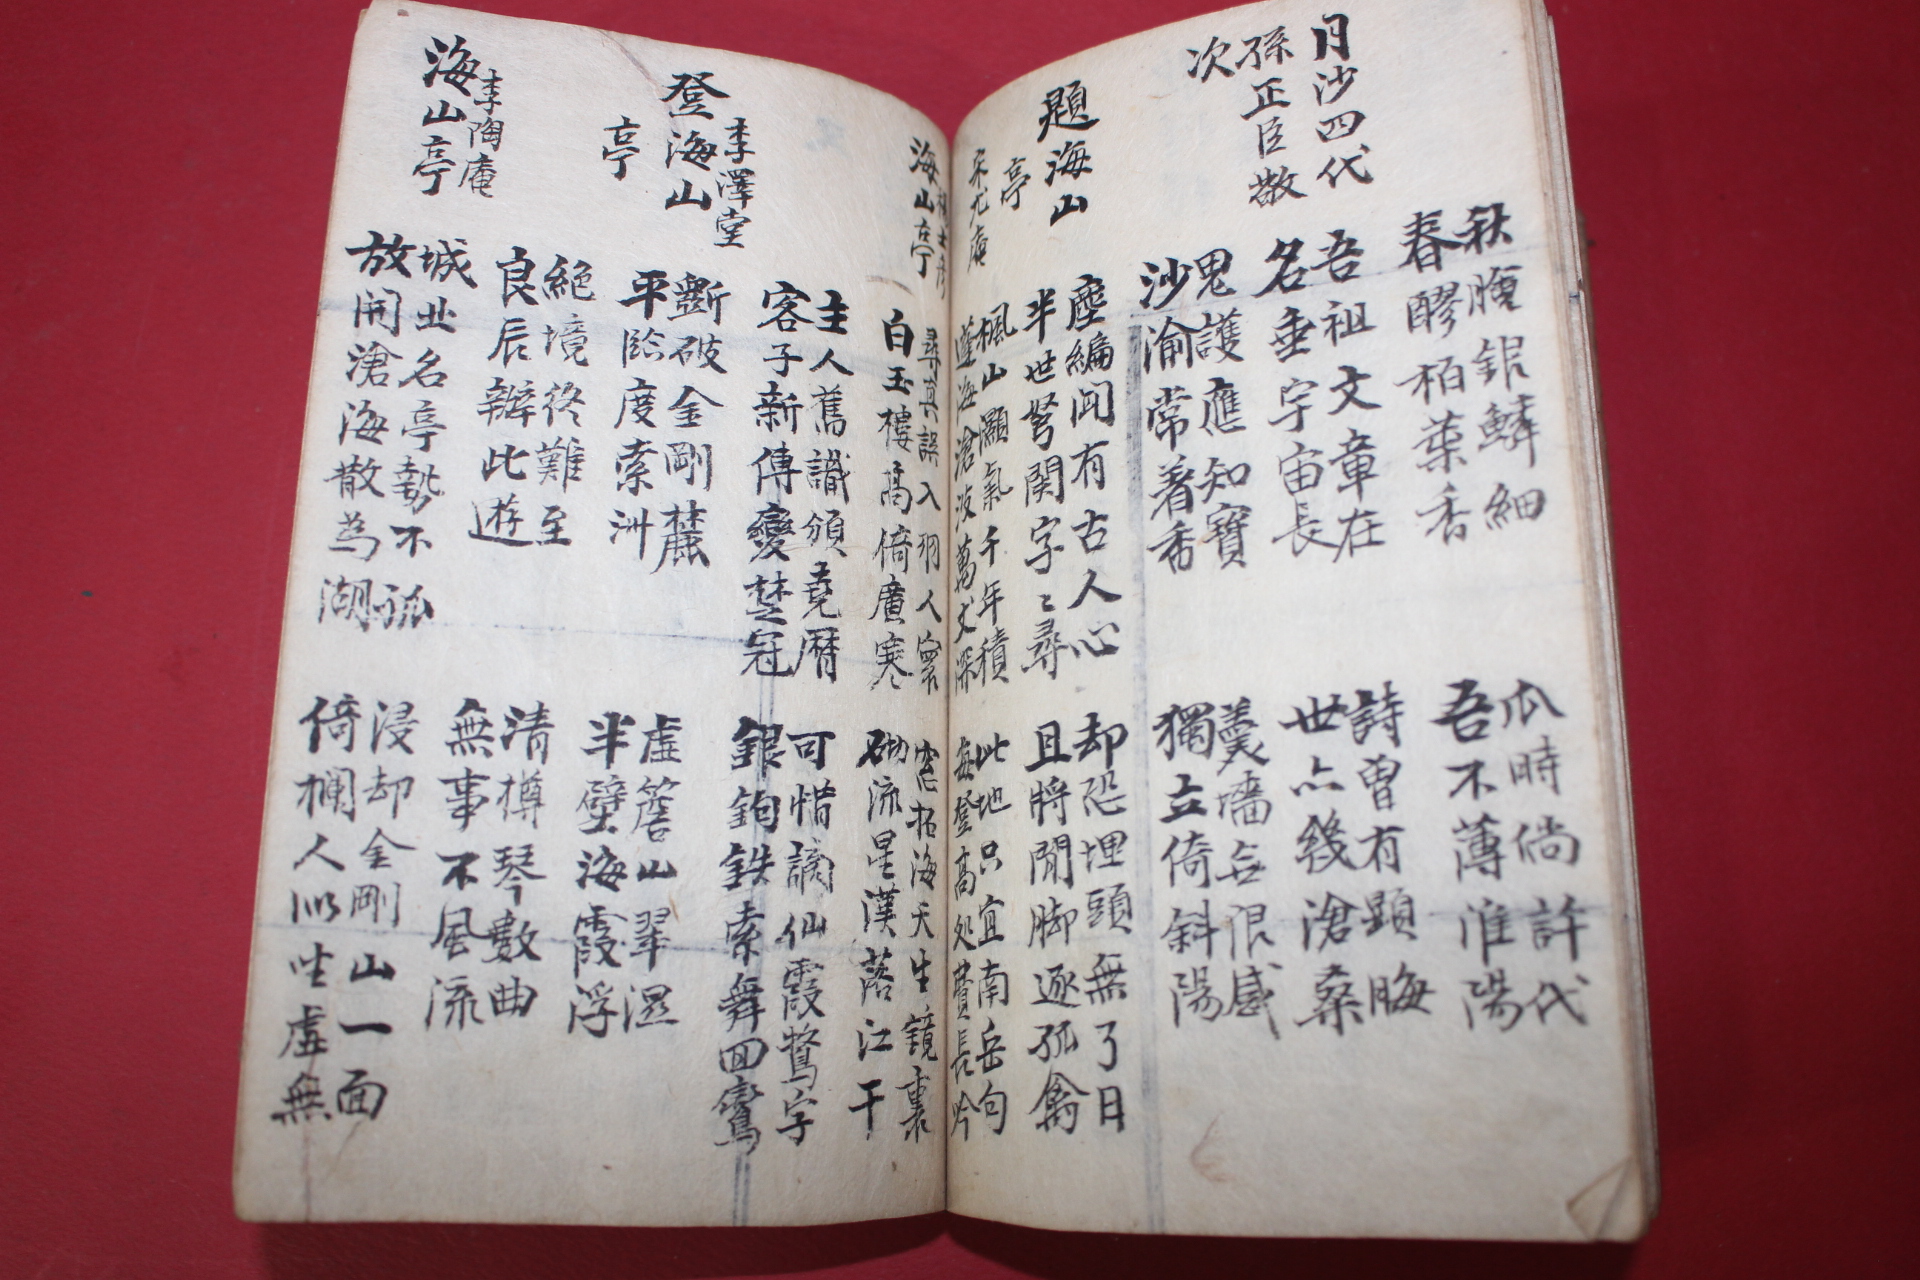 秋膾銀鱗細
春醪栢葉香
瓜時尙許代
吾不薄淮陽
月沙四代
孫正臣敬
次
吾祖文章在
名垂宇宙長
詩曾有顯晦
世亦幾滄桑
鬼護應知寶
沙淪常着香
羹墻無限感
獨立倚斜陽
題海山
亭
宋尤庵
塵編闶有古人心
半世琴関字〻尋
却恐埋頭無了日
且將閒脚逐孤禽
楓山灝氣千年積
蓬海滄波萬丈深
此地只宜南岳句
每登高処費長吟
楊士彦
海山亭
尋真誤入羽人寰
白玉樓高倚廣寒
窓拓海天生鏡裏
砌流星漢落江干
主人舊識頒堯曆
客子新傳變楚冠
可惜謫仙霞鶩字
銀鉤鉄索舞回鸞
李澤堂
登海山
亭
斷破金剛麓
平臨度索洲
虛簷山翠濕
半壁海霞浮
絕境終難至
良辰辦此遊
清樽琴數曲
無事不風流
李陶庵
海山亭
城北名亭勢不孤
放開滄海散為湖
浸却金剛山一面
倚欄人似坐虛無